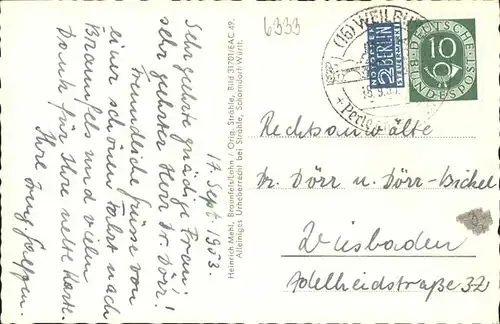 6333
17. Sept. 1953.
Sehr geehrte gnädige Frau!
sehr geehrter Herr Dr. Dörr!
Freundliche Grüsse von
einer schönen Fahrt nach
Braunfels und vielen
Dank für Ihre nette Karte.
Ihre
Heinrich Mehl, Braunfels/Lahn / Orig. Strähle, Bild 31701/EAC 49.
Alleiniges Urheberrecht bei Strähle, Schorndorf/Württ.
(16) WEILBU
+Perle
NOTOPFER
2 BERLIN
STEUERMARKE
DEUTSCHE
BUNDESPOST
10
Rechtsanwälte
Dr. Dörr u. Dörr-Bickel
Wiesbaden
Adelheidstraße 32